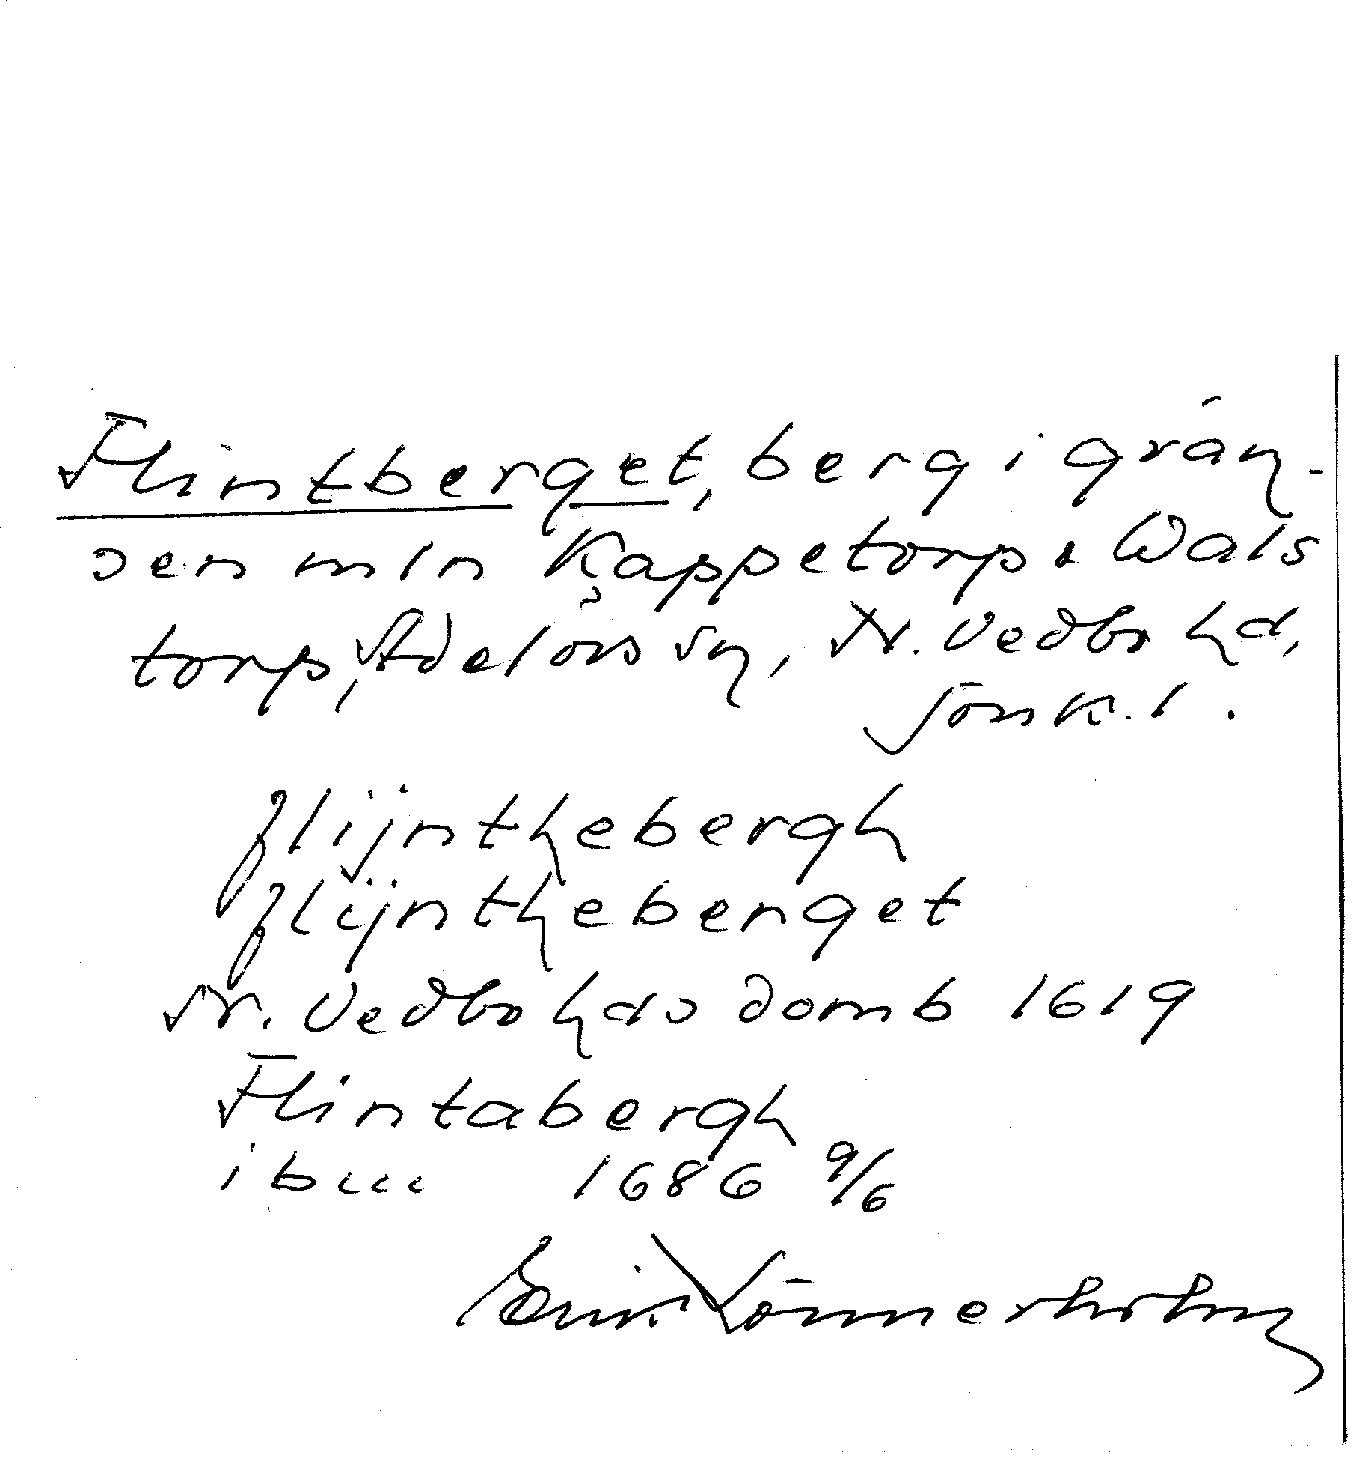 Flintberget, berg i grän-
sen mln Kappetorp o Wals
torp, Adelövs sn, N. Vedbo hd,
Jönk. l.
flijnthebergh
flijntheberget
N. Vedbo hds domb 1619
Flintabergh
ib 1686 9/6
Erik Lönnerholm